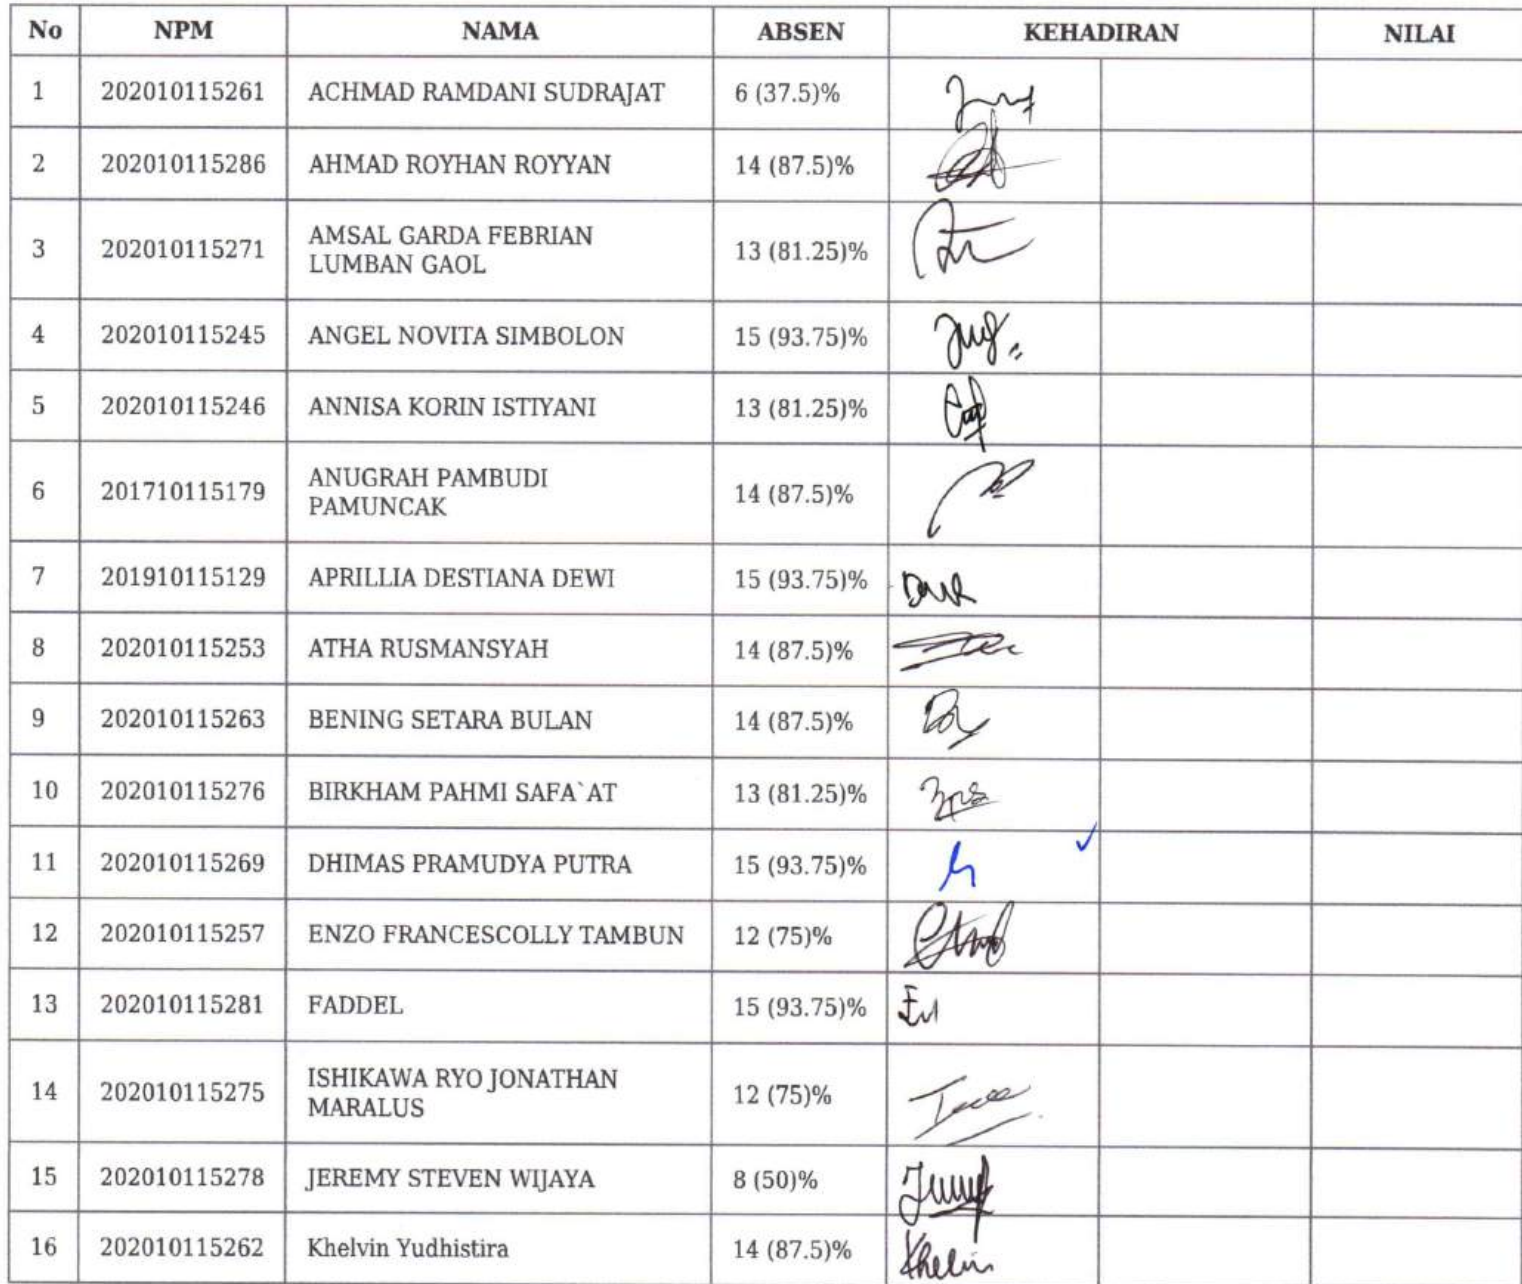 No NPM NAMA ABSEN KEHADIRAN NILAI
1 202010115261 ACHMAD RAMDANI SUDRAJAT 6 (37.5)%
2 202010115286 AHMAD ROYHAN ROYYAN 14 (87.5)%
3 202010115271 AMSAL GARDA FEBRIAN
LUMBAN GAOL 13 (81.25)%
4 202010115245 ANGEL NOVITA SIMBOLON 15 (93.75)%
5 202010115246 ANNISA KORIN ISTIYANI 13 (81.25)%
6 201710115179 ANUGRAH PAMBUDI
PAMUNCAK 14 (87.5)%
7 201910115129 APRILLIA DESTIANA DEWI 15 (93.75)%
8 202010115253 ATHA RUSMANSYAH 14 (87.5)%
9 202010115263 BENING SETARA BULAN 14 (87.5)%
10 202010115276 BIRKHAM PAHMI SAFA`AT 13 (81.25)%
11 202010115269 DHIMAS PRAMUDYA PUTRA 15 (93.75)%
12 202010115257 ENZO FRANCESCOLLY TAMBUN 12 (75)%
13 202010115281 FADDEL 15 (93.75)%
14 202010115275 ISHIKAWA RYO JONATHAN
MARALUS 12 (75)%
15 202010115278 JEREMY STEVEN WIJAYA 8 (50)%
16 202010115262 Khelvin Yudhistira 14 (87.5)% Khelvin